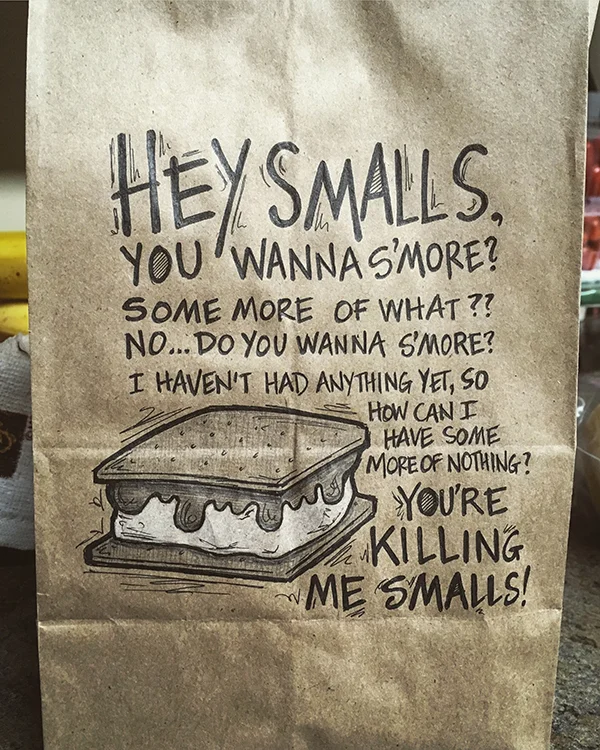 HEY SMALLS,
YOU WANNA S'MORE?
SOME MORE OF WHAT??
NO... DO YOU WANNA S'MORE?
I HAVEN'T HAD ANYTHING YET, SO
HOW CAN I
HAVE SOME
MORE OF NOTHING?
YOU'RE
KILLING
ME SMALLS!